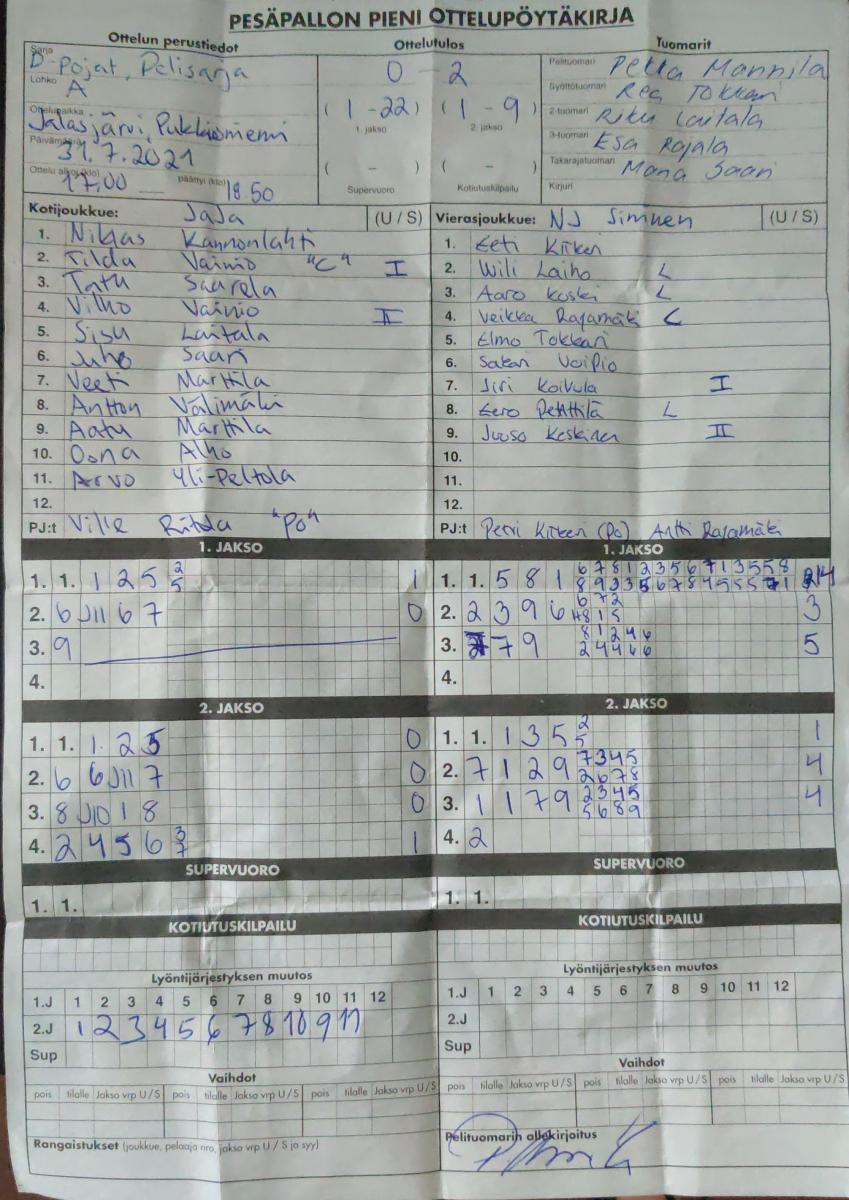 PESÄPALLON PIENI OTTELUPÖYTÄKIRJA
Ottelun perustiedot Ottelutulos Tuomarit
Sarja D-Pojat, Pelisarja
Lohko A
Ottelupaikka Jalasjärvi,
Päivämäärä 31.7.2021
Ottelu alkoi (klo) 17.00 päättyi (klo) 18.50
0 - 2
( 1 - 22 ) ( 1 - 9 )
1. jakso 2. jakso
( - ) ( - )
Supervuoro Kotiutuskilpailu
Pelituomari Pekka Mannila
Syöttötuomari Tokkari
2-tuomari Riku Laitala
3-tuomari Esa Rajala
Takarajatuomari Mana Saari
Kirjuri
Kotijoukkue: JaJa (U / S)
1. Niklas Kannonlahti
2. Tilda Vainio "C" I
3. Tatu Saarela
4. Vilho Vainio II
5. Sisu Laitala
6. Juho Saari
7. Veeti Marttila
8. Antton Välimäki
9. Aatu Marttila
10. Oona Alho
11. Arvo Yli-Peltola
12.
PJ:t Ville "PO"
Vierasjoukkue: NJ Siminen (U / S)
1. Eeti Kitkeri
2. Wili Laiho L
3. Aaro Koski L
4. Veikka Rajamäki C
5. Elmo Tokkari
6. Sakari Voipio
7. Jiri Koivula I
8. Eero L
9. Juuso Keskinen II
10.
11.
12.
PJ:t (PO) Antti Rajamäki
1. JAKSO
1. 1. 1 2 5 2 1
5
2. 6 J11 6 7 0
3. 9
4.
1. JAKSO
1. 1. 5 8 1
2. 2 3 9 6 6 7 2 3
3. 7 9 8 1 2 4 6 5
2 4 4 6 6
4.
2. JAKSO
1. 1. 1. 2 5 0
2. 6 6 J11 7 0
3. 8 J10 1 8 0
4. 2 4 5 6 3 1
7
2. JAKSO
1. 1. 1 3 5 2 1
5
2. 7 1 2 9 7 3 4 5 4
2 6 7 8
3. 1 1 7 9 2 3 4 5 4
5 6 8 9
4. 2
SUPERVUORO
1. 1.
SUPERVUORO
1. 1.
KOTIUTUSKILPAILU
KOTIUTUSKILPAILU
Lyöntijärjestyksen muutos
1.J 1 2 3 4 5 6 7 8 9 10 11 12
2.J 1 2 3 4 5 6 7 8 10 9 11
Sup
Lyöntijärjestyksen muutos
1.J 1 2 3 4 5 6 7 8 9 10 11 12
2.J
Sup
Vaihdot
pois tilalle Jakso vrp U / S pois tilalle Jakso vrp U / S pois tilalle Jakso vrp U / S
Vaihdot
pois tilalle Jakso vrp U / S pois tilalle Jakso vrp U / S pois tilalle Jakso vrp U / S
Rangaistukset (joukkue, pelaaja nro, jakso vrp U / S ja syy)
Pelituomarin allekirjoitus